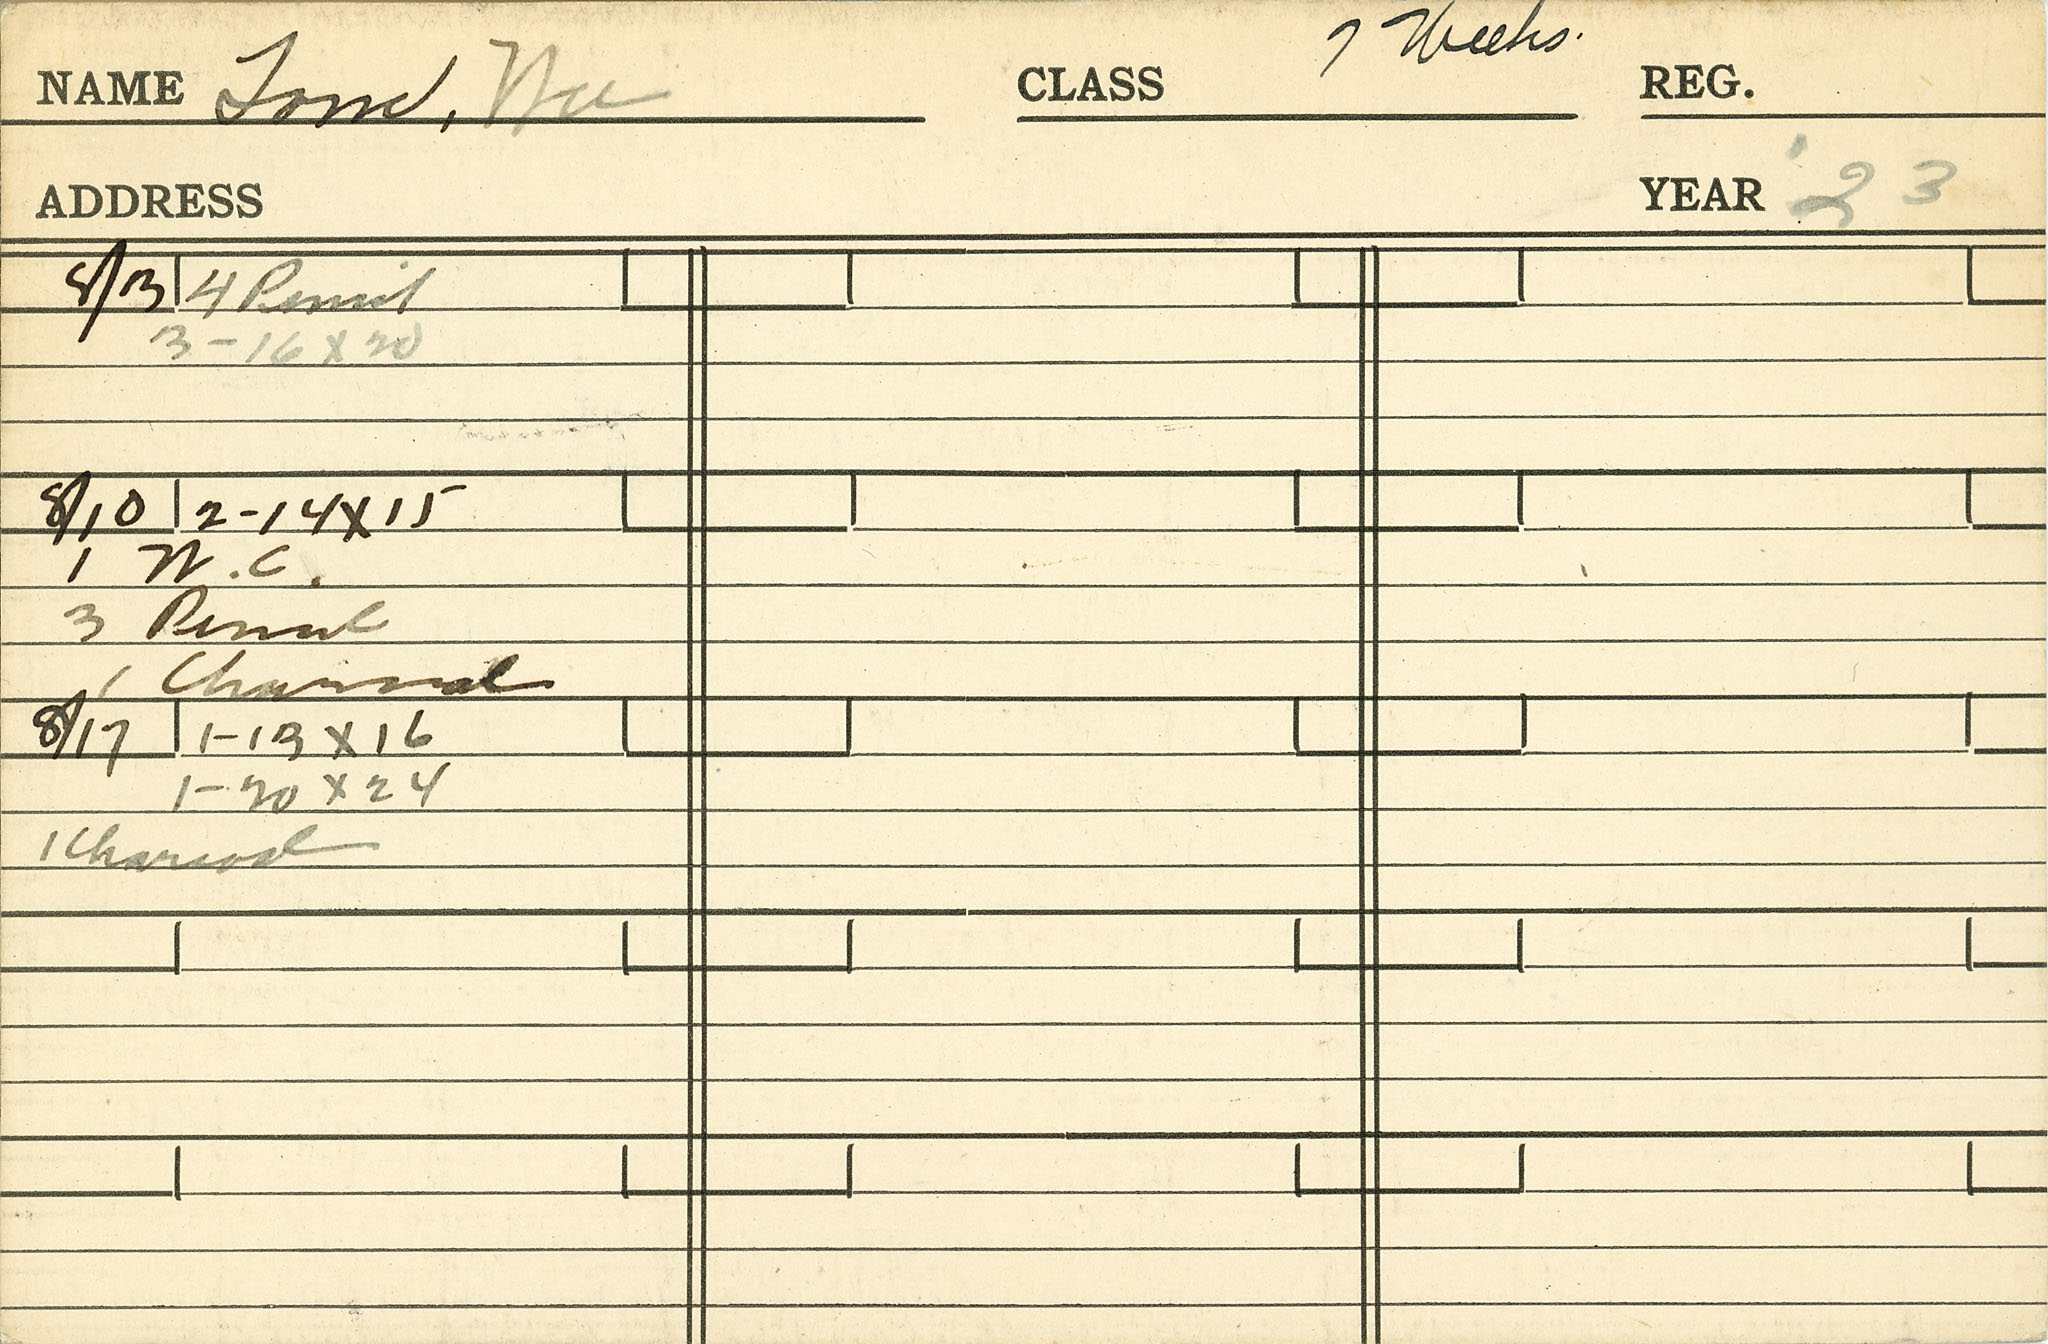 7 Weeks.
NAME Tom, CLASS REG.
ADDRESS YEAR '23
8/3 4 Pencil
3-16 x 20
8/10 2-14 x 15
1 W.C.
3 Pencil
1 Charcoal
8/17 1-13 x 16
1-20 x 24
1 Charcoal